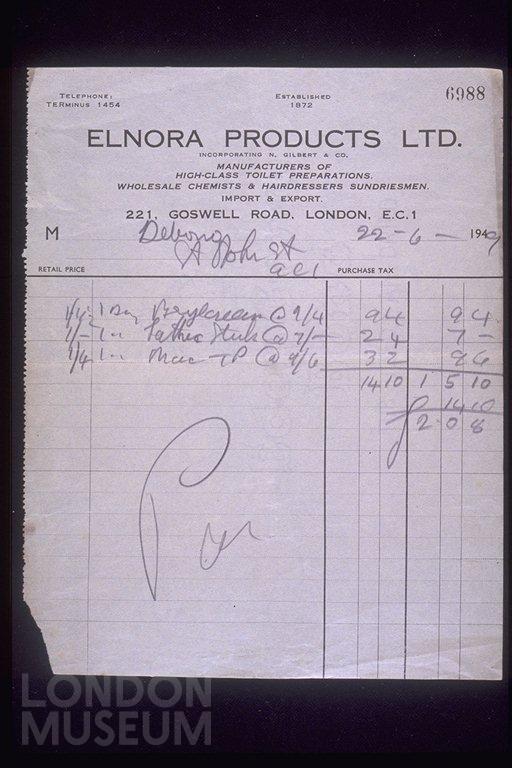 TELEPHONE: ESTABLISHED 6988
TERMINUS 1454 1872
ELNORA PRODUCTS LTD.
INCORPORATING N. GILBERT & CO.
MANUFACTURERS OF
HIGH-CLASS TOILET PREPARATIONS.
WHOLESALE CHEMISTS & HAIRDRESSERS SUNDRIESMEN.
IMPORT & EXPORT.
221, GOSWELL ROAD, LONDON, E.C.1
M 22-6- 1949
St
RETAIL PRICE PURCHASE TAX
1 Brylcream @ 9/4 9 4 9 4
1/- 1 " @ 7/- 2 4 7 -
1 " @ 9/6 3 2 9 6
14 10 1 5 10
14 10
2 0 8
LONDON
MUSEUM